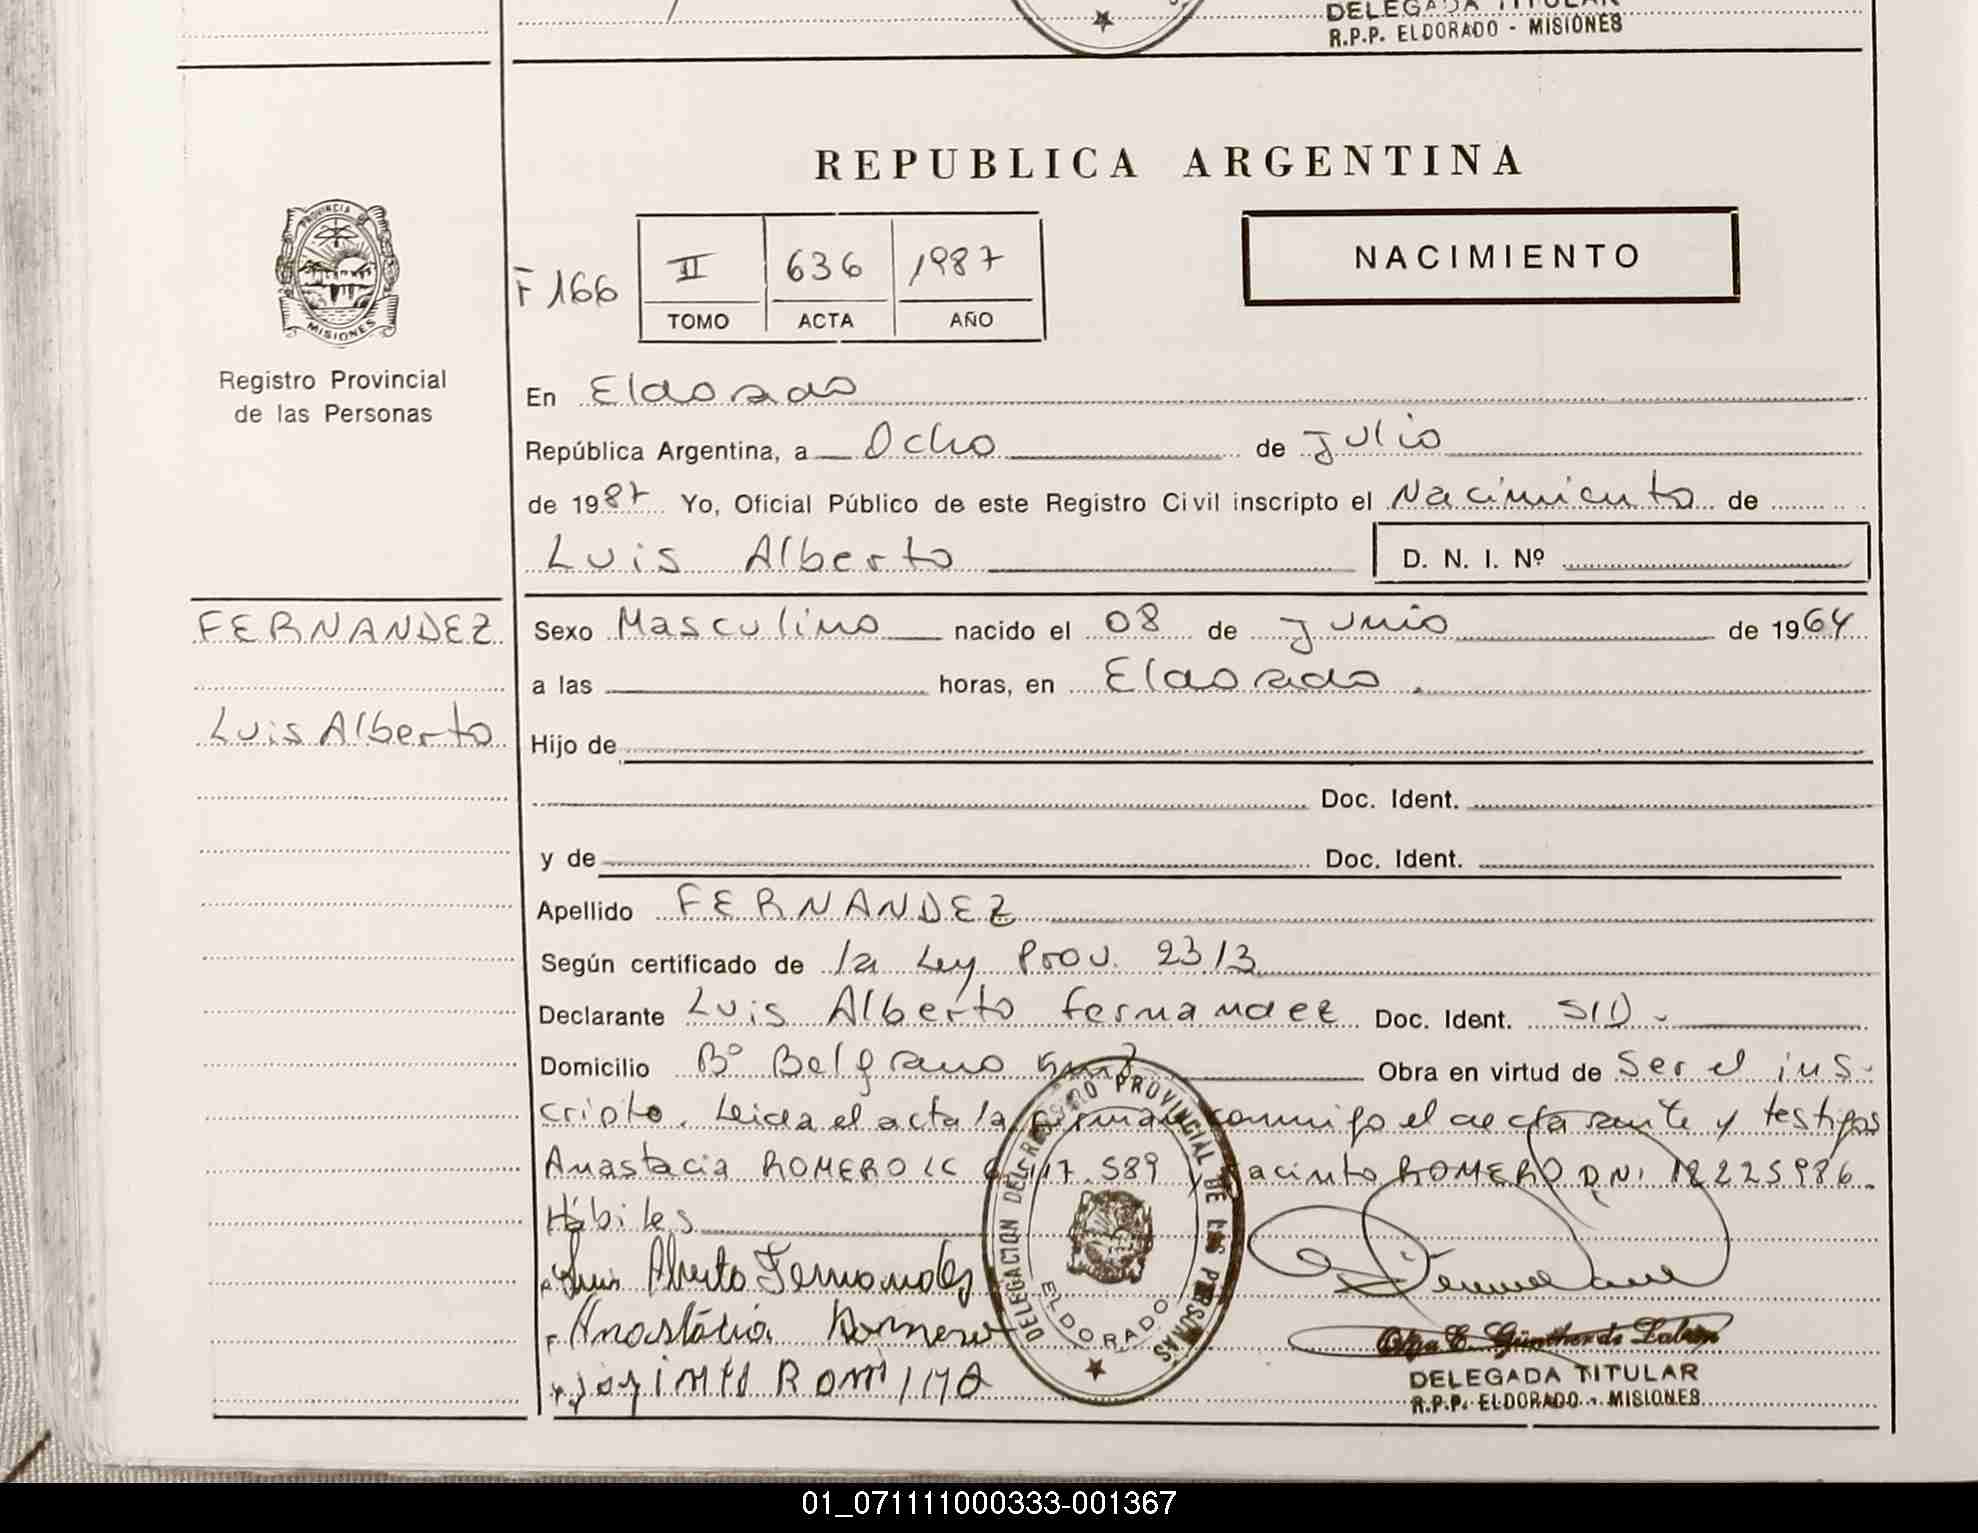 DELEGADA TITULAR
R.P.P. ELDORADO - MISIONES
REPUBLICA ARGENTINA
PROVINCIA
MISIONES
Registro Provincial
de las Personas
F 166
II 636 1987
TOMO ACTA AÑO
NACIMIENTO
En Eldorado
República Argentina, a Ocho de julio
de 1987 Yo, Oficial Público de este Registro Civil inscripto el Nacimiento de
Luis Alberto D. N. I. Nº
FERNANDEZ
Luis Alberto
Sexo Masculino nacido el 08 de junio de 1964
a las horas, en Eldorado.
Hijo de
Doc. Ident.
y de Doc. Ident.
Apellido FERNANDEZ
Según certificado de la Ley Prov. 2313
Declarante Luis Alberto Fernandez Doc. Ident. SID.
Domicilio Bº Belgrano Obra en virtud de Ser el ins-
cripto. Leida el acta la firman conmigo el declarante y testigos
Anastacia ROMERO LC 6.117.589 y Jacinto ROMERO D.N.I 18225986.
Hábiles
Luis Alberto Fernandez
Anastácia Romero
DELEGACION DEL REGISTRO PROVINCIAL DE LAS PERSONAS
ELDORADO
Olga E. Günther de
DELEGADA TITULAR
R.P.P. ELDORADO - MISIONES
01_071111000333-001367